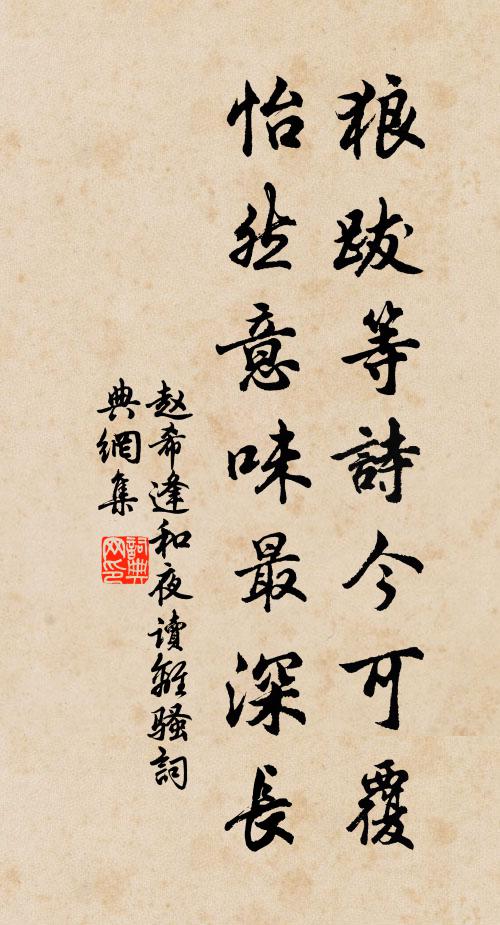 狼跋等詩今可覆
怡然意味最深長
赵希逢和夜讀離騷詞
典網集
詞典
网印